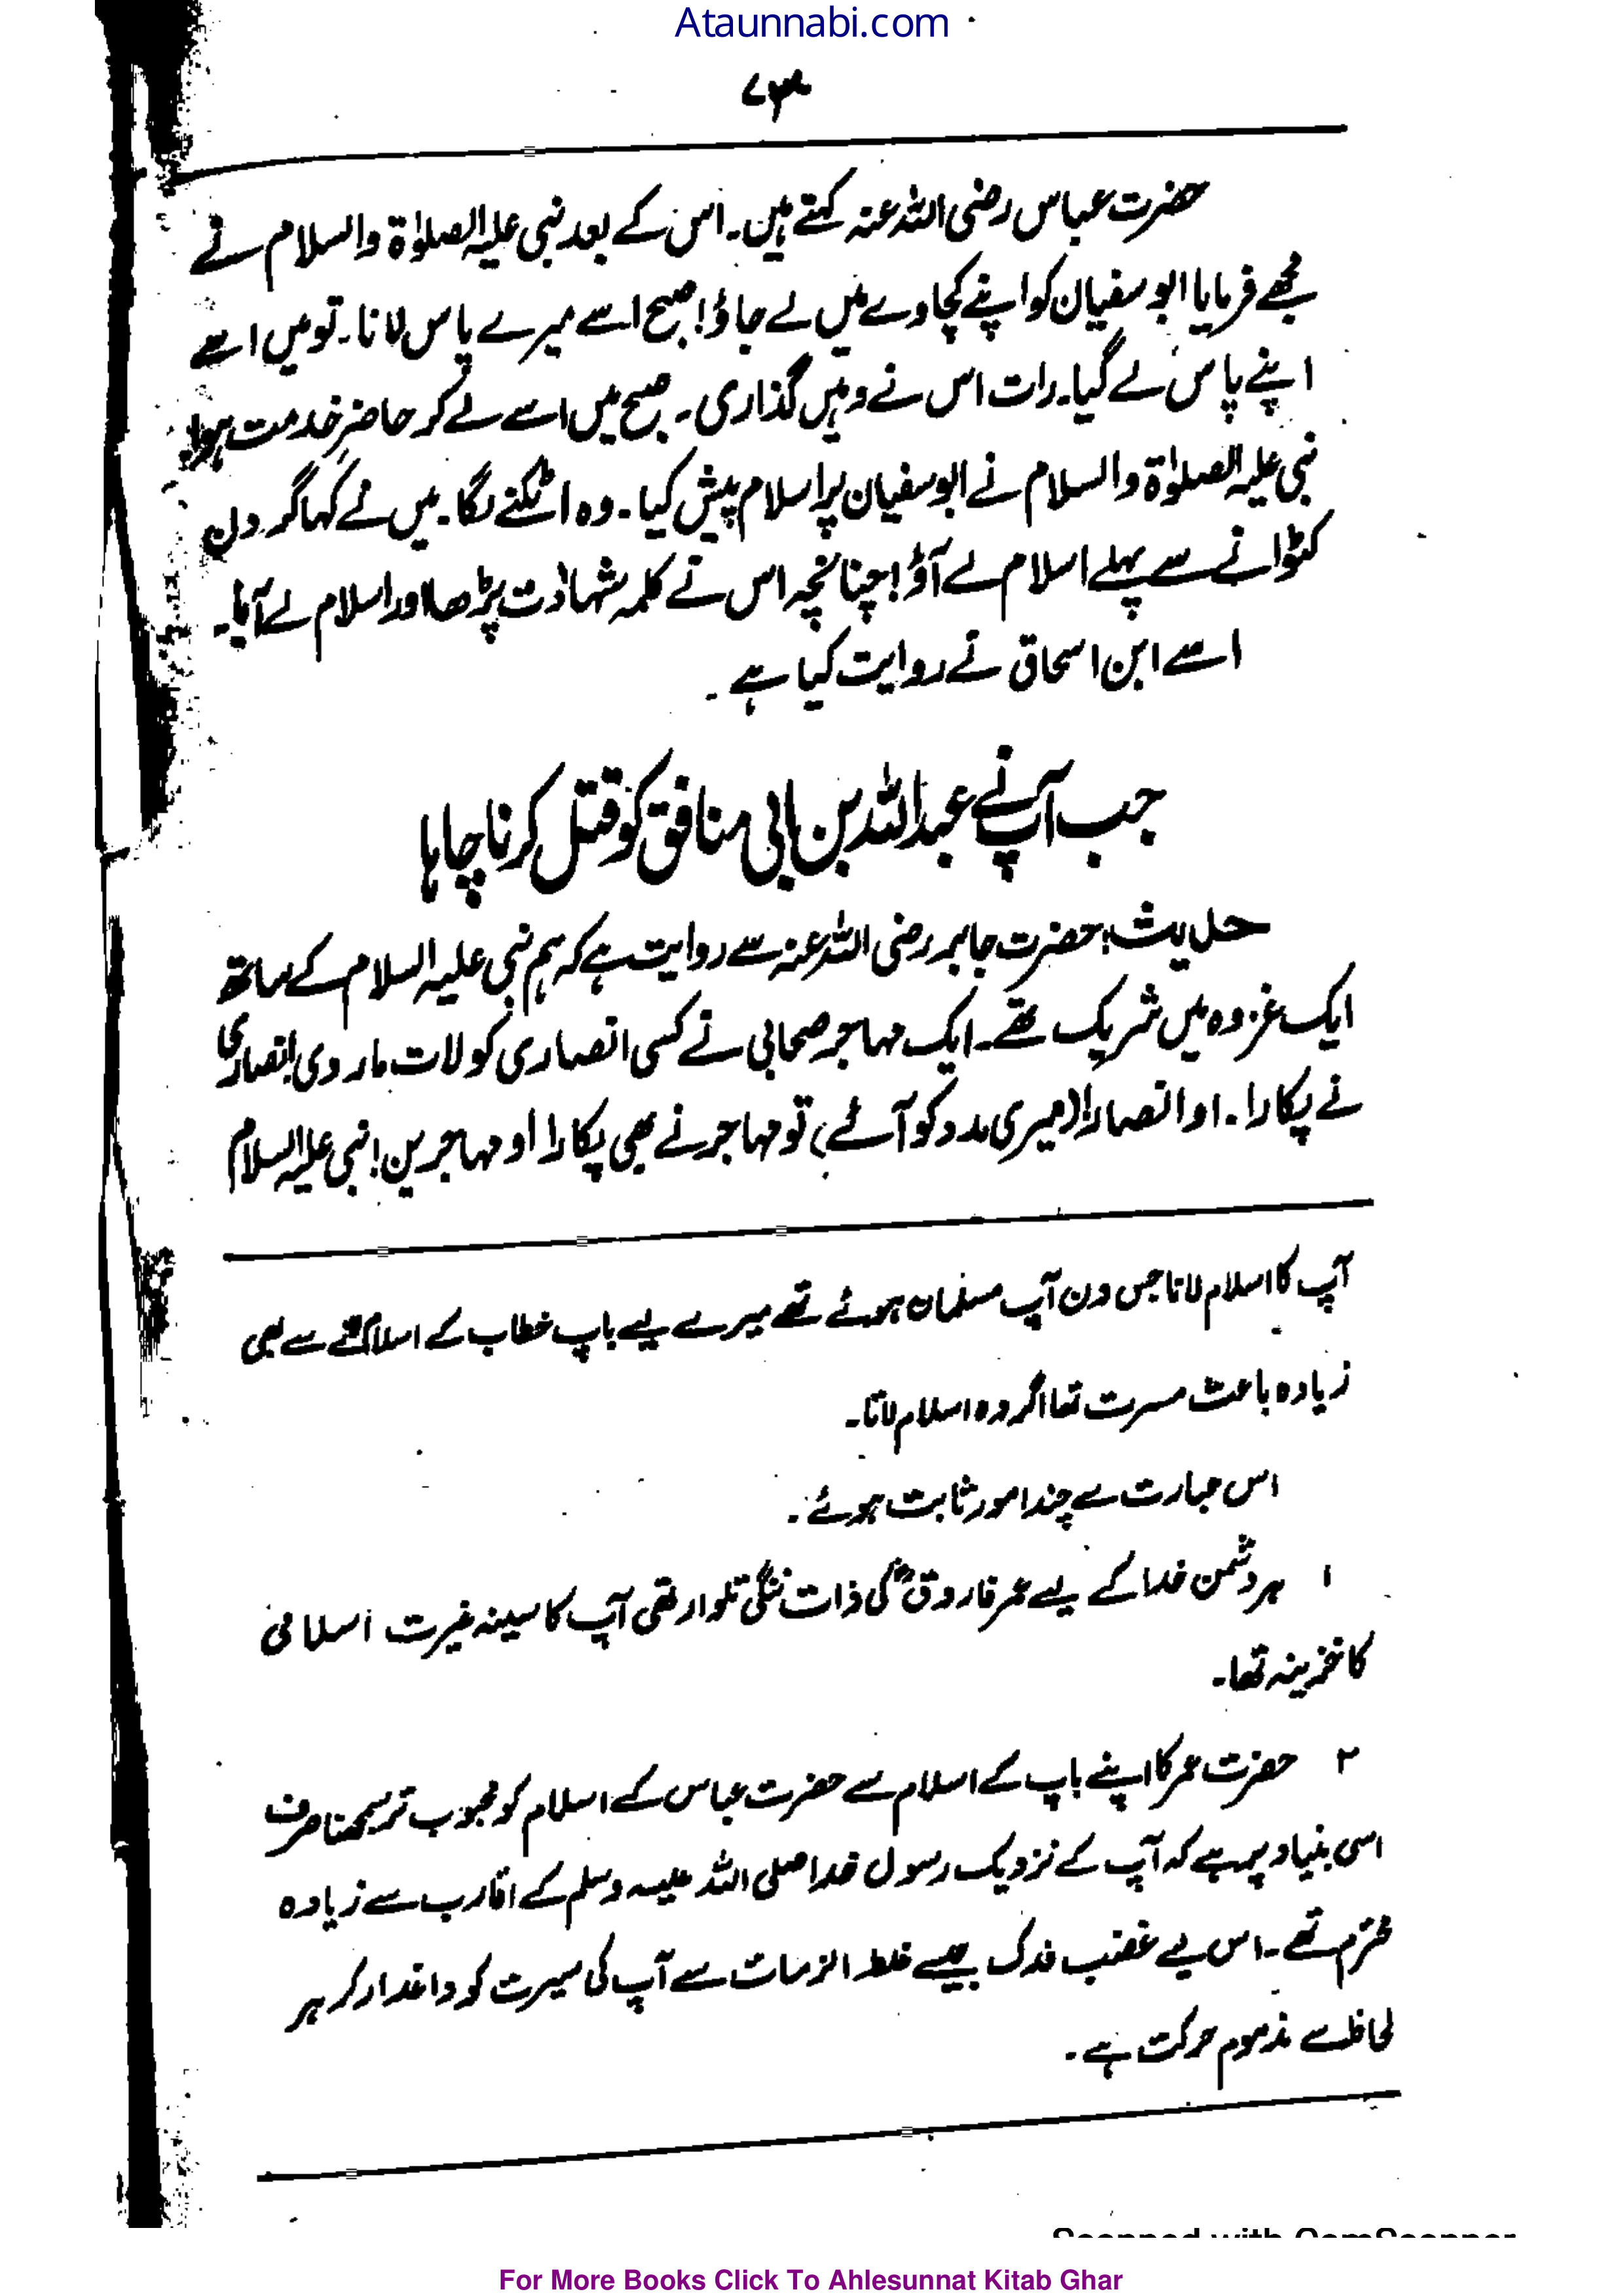 Ataunnabi.com
حضرت عباس رضی اللہ عنہ کہتے ہیں۔ اس کے بعد نبی علیہ الصلوٰۃ والسلام نے
مجھے فرمایا ابو سفیان کو اپنے کچاوے میں لے جاؤ! صبح اسے میرے پاس لانا۔ تو میں اسے
اپنے پاس لے گیا۔ رات اس نے وہیں گذاری۔ صبح میں اسے لے کر حاضرِ خدمت ہوا
نبی علیہ الصلوٰۃ والسلام نے ابو سفیان پر اسلام پیش کیا۔ وہ اٹکنے لگا۔ میں نے کہا گر دن
کٹوانے سے پہلے اسلام لے آؤ! چنانچہ اس نے کلمہ شہادت پڑھا اور اسلام لے آیا۔
اسے ابن اسحاق نے روایت کیا ہے۔
جب آپ نے عبداللہ بن ابی منافق کو قتل کرنا چاہا
حدیث: حضرت جابر رضی اللہ عنہ سے روایت ہے کہ ہم نبی علیہ السلام کے ساتھ
ایک غزوہ میں شریک تھے۔ ایک مہاجر صحابی نے کسی انصاری کو لات مار دی انصاری
نے پکارا۔ او انصار! (میری مدد کو آئے) تو مہاجر نے بھی پکارا او مہاجرین! نبی علیہ السلام
آپ کا اسلام لانا جس دن آپ مسلمان ہوئے تھے میرے لیے باپ خطاب کے اسلام سے بھی
زیادہ باعث مسرت تھا اگر وہ اسلام لاتا۔
اس عبارت سے چند امور ثابت ہوئے۔
۱ ہر دشمن خدا کے لیے عمر فاروقؓ کی ذات ننگی تلوار تھی آپ کا سینہ غیرت اسلامی
کا خزینہ تھا۔
۲ حضرت عمر کا اپنے باپ کے اسلام سے حضرت عباس کے اسلام کو محبوب تر سمجھنا صرف
اسی بنیاد پر ہے کہ آپ کے نزدیک رسول خدا صلی اللہ علیہ وسلم کے اقارب سے زیادہ
محترم تھے۔ اس لیے غصب فدک جیسے غلط الزمات سے آپ کی سیرت کو داغدار کر ہر
لحاظ سے مذموم حرکت ہے۔
For More Books Click To Ahlesunnat Kitab Ghar